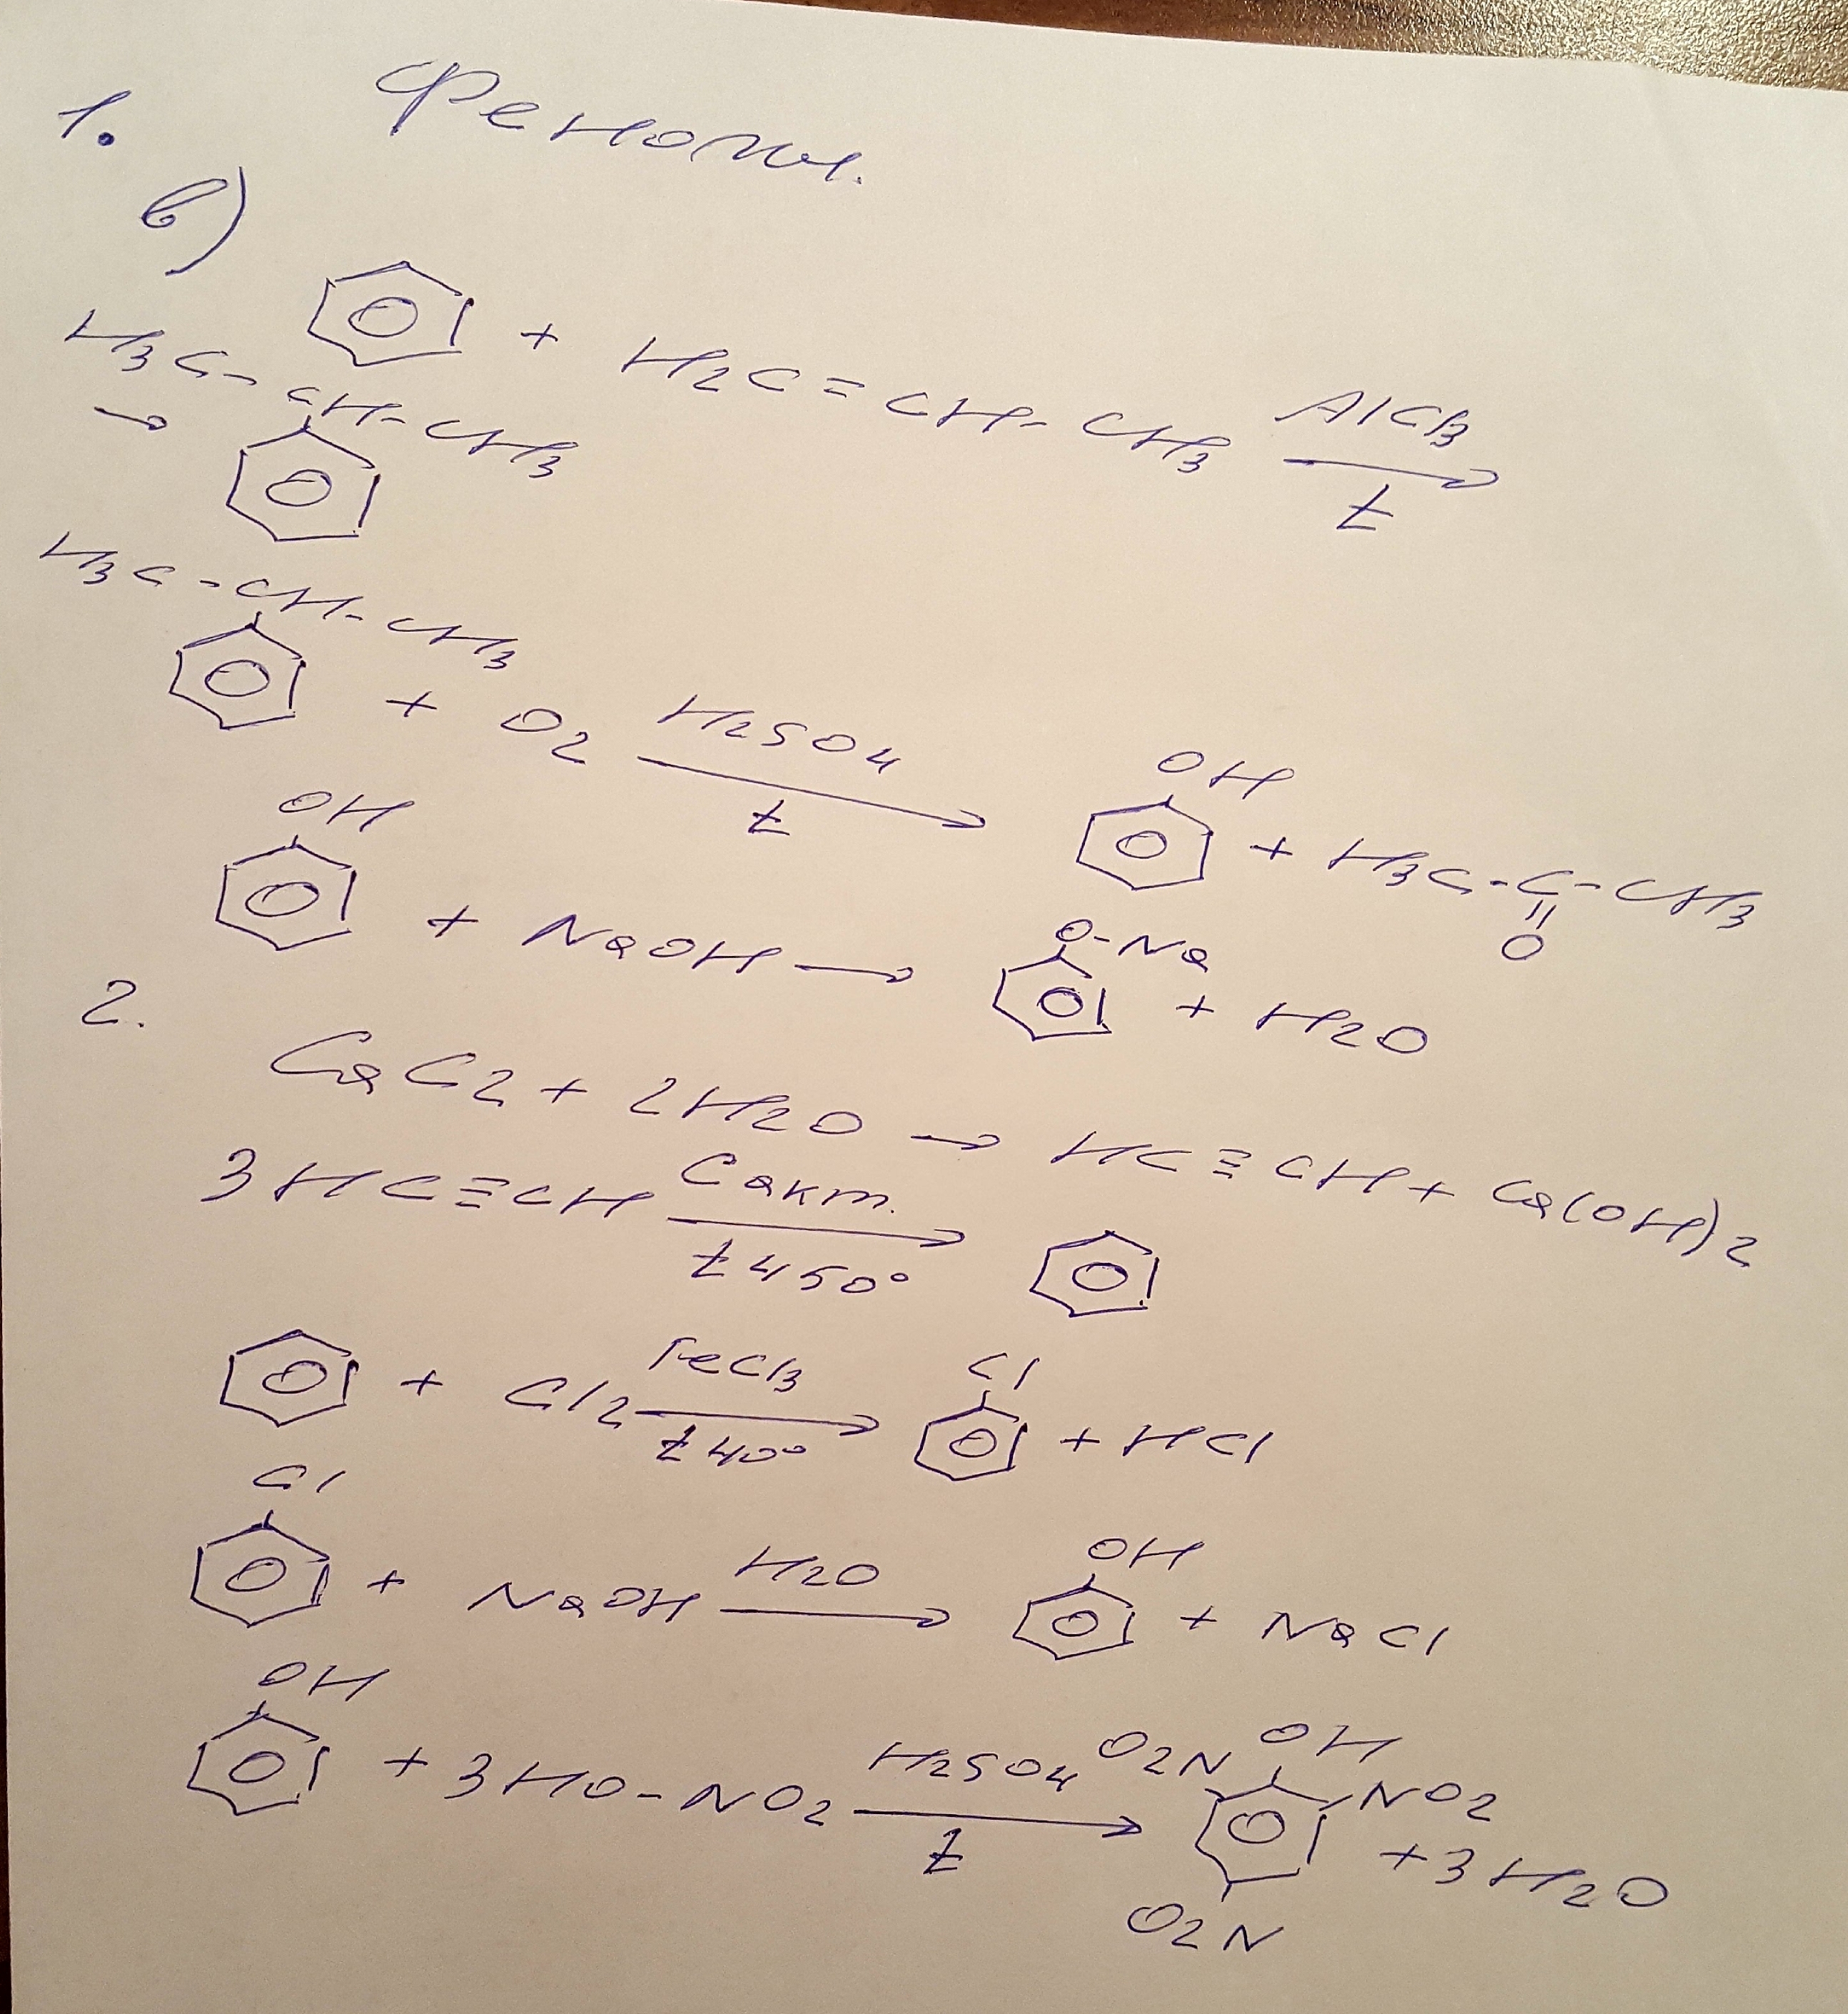 1. Фенолы.
в)
+ H2C=CH-CH3 AlCl3 t
→ H3C-CH-CH3
H3C-CH-CH3
+ O2 H2SO4 t → OH + H3C-C-CH3
O
OH + NaOH → O-Na + H2O
2.
CaC2 + 2H2O → HC≡CH + Ca(OH)2
3HC≡CH Cакт. t 450° →
+ Cl2 FeCl3 t 40° → Cl + HCl
Cl + NaOH H2O → OH + NaCl
OH + 3HO-NO2 H2SO4 t → O2N OH NO2 + 3H2O
O2N